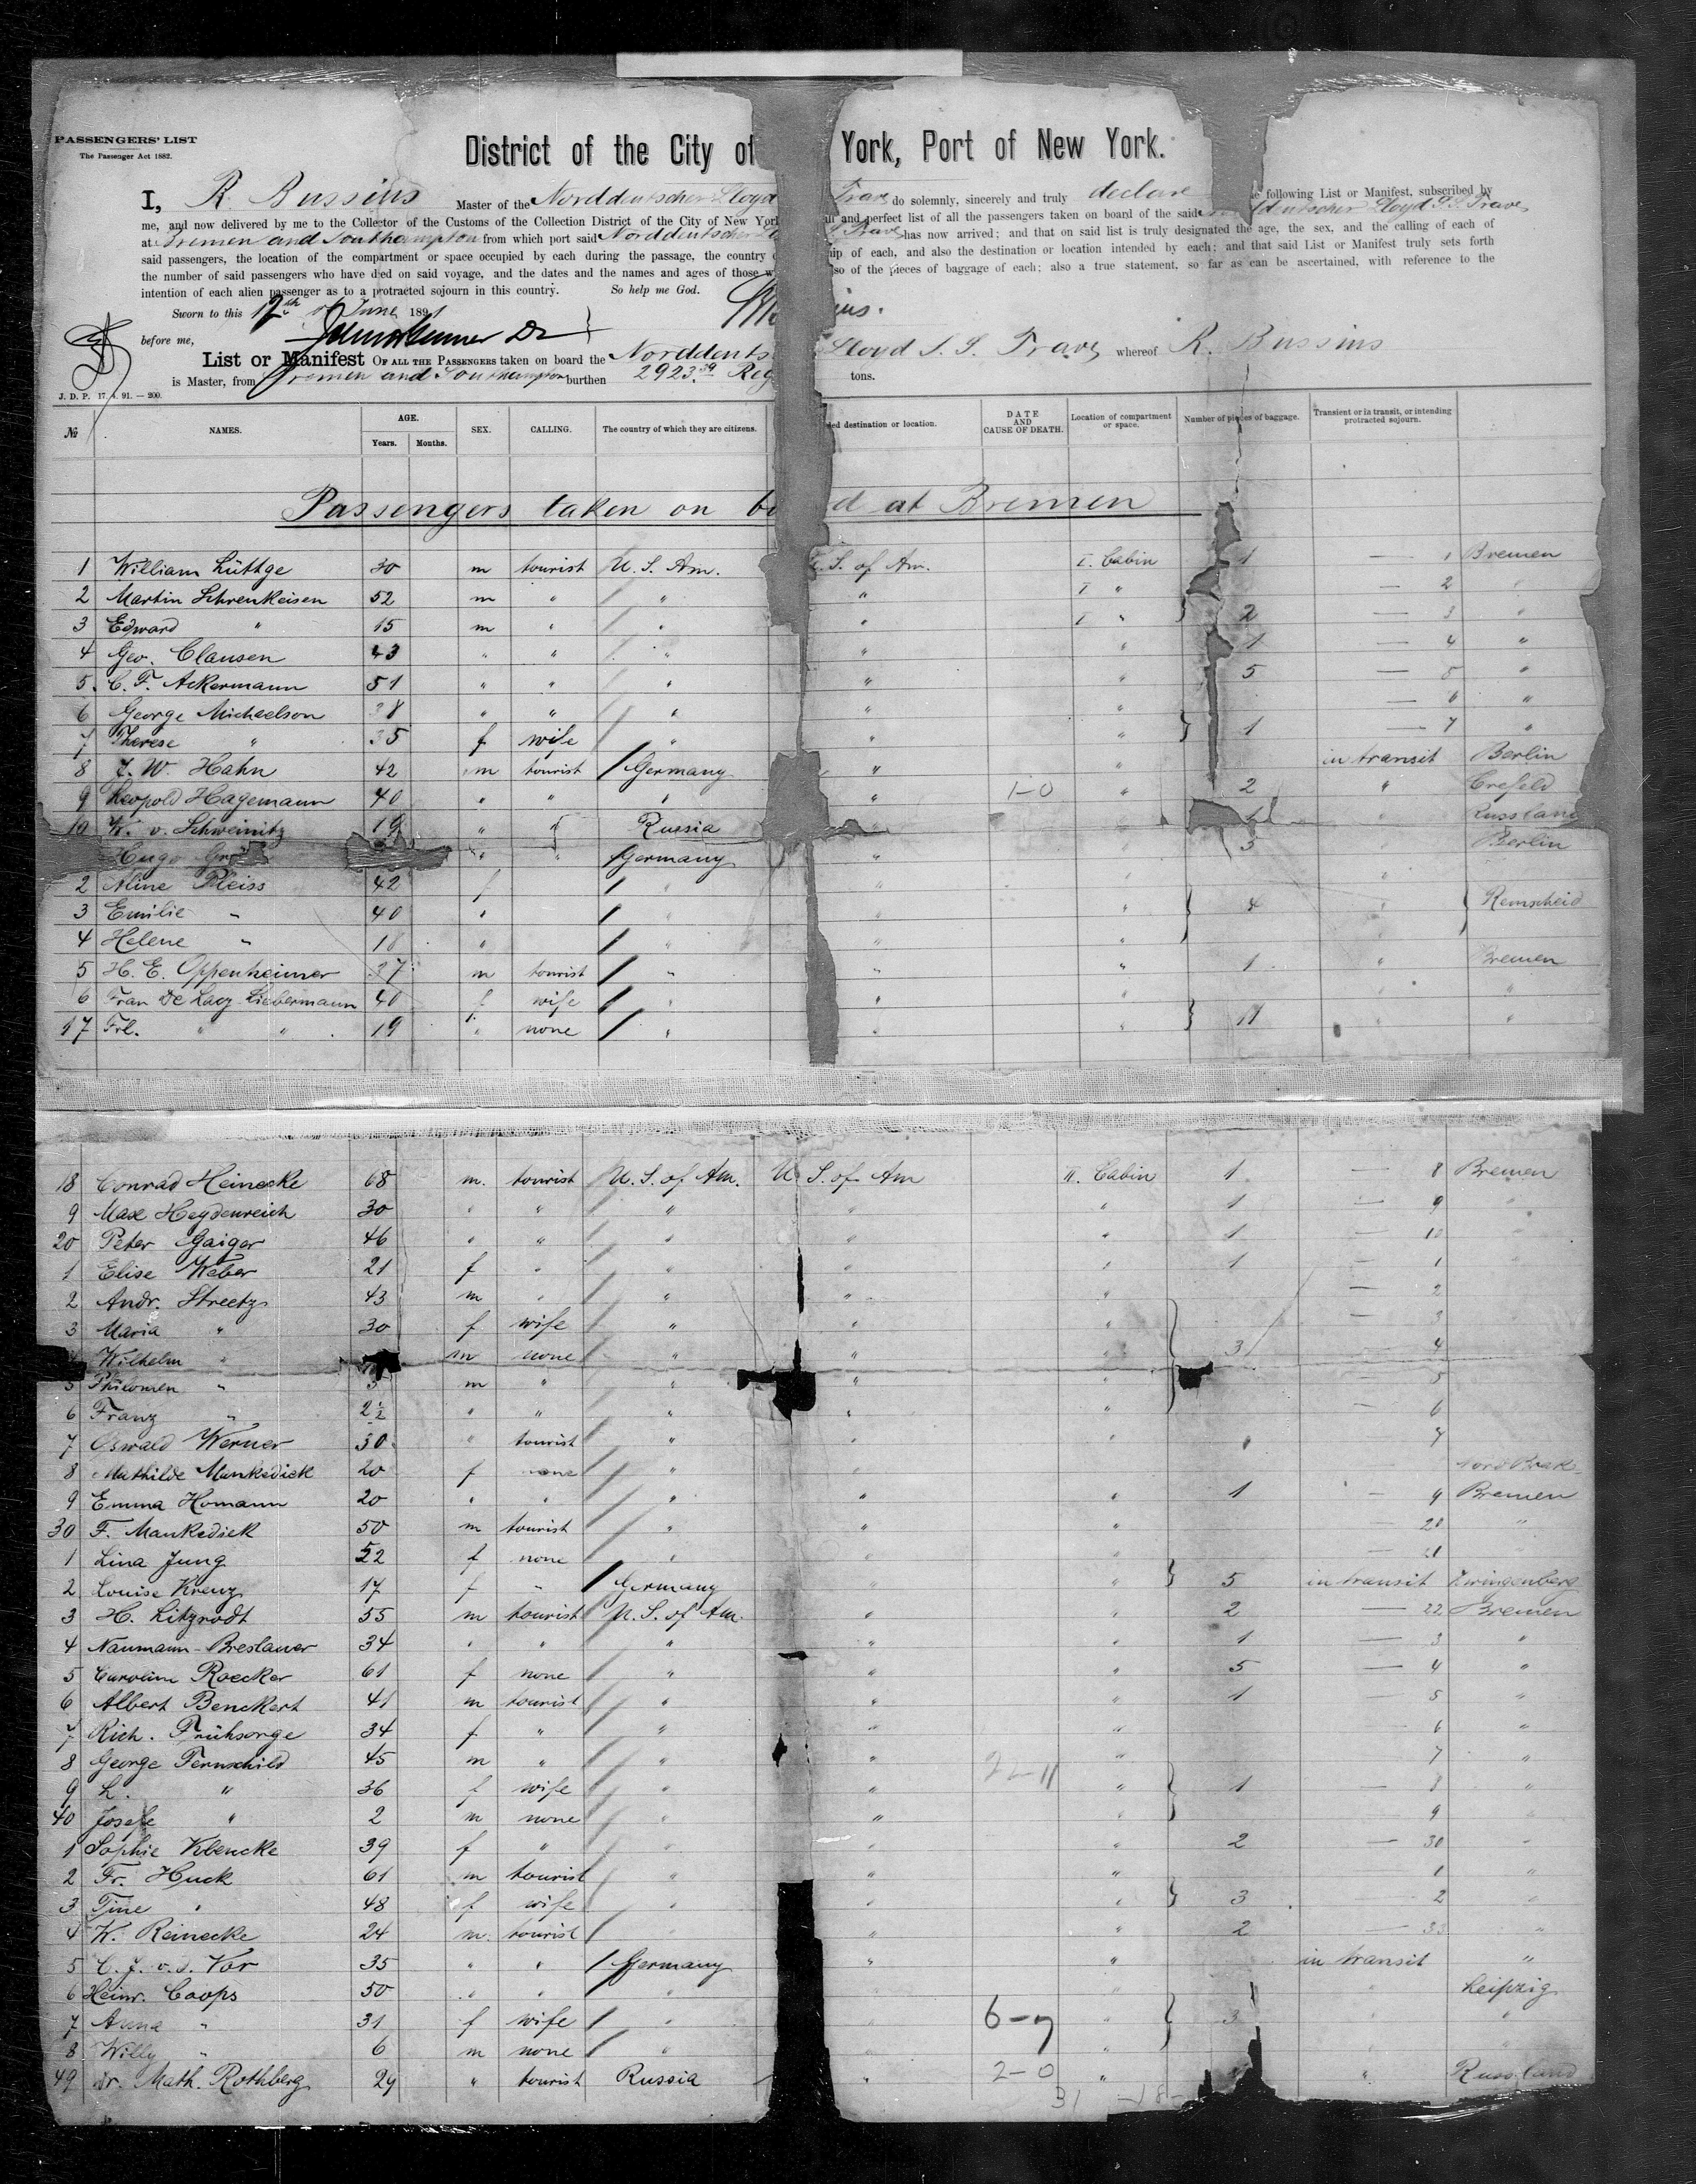 PASSENGERS' LIST
The Passenger Act 1882.
District of the City of York, Port of New York.
I, R. Bussius Master of the Norddeutscher Lloyd Trave do solemnly, sincerely and truly declare following List or Manifest, subscribed by
me, and now delivered by me to the Collector of the Customs of the Collection District of the City of New York and perfect list of all the passengers taken on board of the said Lloyd S. S. Trave
at Bremen and Southampton from which port said Norddeutscher S. Trave has now arrived; and that on said list is truly designated the age, the sex, and the calling of each of
said passengers, the location of the compartment or space occupied by each during the passage, the country of each, and also the destination or location intended by each; and that said List or Manifest truly sets forth
the number of said passengers who have died on said voyage, and the dates and the names and ages of those of the pieces of baggage of each; also a true statement, so far as can be ascertained, with reference to the
intention of each alien passenger as to a protracted sojourn in this country. So help me God.
Sworn to this 12th of June 1891
before me,
List or Manifest OF ALL THE PASSENGERS taken on board the Norddeuts Lloyd S. S. Trave whereof R. Bussius
is Master, from Bremen and Southampton burthen 2923.39 Reg tons.
J. D. P. 17. 4. 91. — 200.
№ NAMES. AGE. Years. Months. SEX. CALLING. The country of which they are citizens. destination or location. DATE AND CAUSE OF DEATH. Location of compartment or space. Number of pieces of baggage. Transient or in transit, or intending protracted sojourn.
Passengers taken on bo d at Bremen
1 William Lüttge 30 m tourist U. S. Am. U. S. of Am. I. Cabin 1 — 1 Bremen
2 Martin Schrenkeisen 52 m " " " I " — 2 "
3 Edward " 15 m " " " I " 2 — 3 "
4 Geo. Clausen 43 " " " " " 1 — 4 "
5 C. F. Ackermann 51 " " " " " 5 — 5 "
6 George Michaelson 38 " " " " " — 6 "
7 Therese " 35 f wife " " " 1 — 7 "
8 J. W. Hahn 42 m tourist Germany " " in transit Berlin
9 Leopold Hagemann 40 " " " " 1-0 " 2 " Crefeld
10 W. v. Schweinitz 19 " " Russia " " " Russland
Hugo " " Germany " " 3 " Berlin
2 Aline Pleiss 42 f " " " "
3 Emilie " 40 " " " " 4 " Remscheid
4 Helene " 18 " " " "
5 H. E. Oppenheimer 37 m tourist " " " 1 " Bremen
6 Frau De Lacy-Liebermann 40 f wife " " " " "
17 Frl. " " 19 " none " " " 11 " "
18 Conrad Heinecke 68 m. tourist U. S. of Am. U. S. of Am II. Cabin 1 — 8 Bremen
9 Max Heydenreich 30 " " " " " 1 — 9 "
20 Peter Gaiger 46 " " " " " 1 — 10 "
1 Elise Weber 21 f " " " " 1 — 1
2 Andr. Streetz 43 m " " " " — 2
3 Maria " 30 f wife " " " — 3
Wilhelm " m none " " " 3 — 4
5 Philomen " 3 m " " " " — 5
6 Franz " 2½ " " " " " — 6
7 Oswald Werner 30 " tourist " " " 7
8 Mathilde Mankedick 20 f none "
9 Emma Homann 20 " " " " " 1 — 9 Bremen
30 F. Mankedick 50 m tourist " " " — 20 "
1 Lina Jung 52 f none " — 21 "
2 Louise Kreuz 17 f " Germany " " 5 in transit Zwingenberg
3 H. Litzrodt 55 m tourist U. S. of Am. " " 2 — 22 Bremen
4 Naumann-Breslauer 34 " " " " " 1 — 3 "
5 Caroline Roecker 61 f none " " " 5 — 4 "
6 Albert Benckert 41 m tourist " " " 1 — 5 "
7 Rich. Frühsorge 34 f " " " " — 6 "
8 George Fernschild 45 m " " " " — 7 "
9 L. " 36 f wife " " " 1 — 8 "
40 Josefe " 2 m none " " " — 9 "
1 Sophie Klencke 39 f " " " " 2 — 30 "
2 Fr. Huck 61 m tourist " " " — 1 "
3 Tine " 48 f wife " " " 3 — 2 "
4 W. Reinecke 24 m. tourist " " " 2 — 33 "
5 C. J. v. d. Vor 35 " " Germany " " in transit "
6 Heinr. Coops 50 " " " " " " Leipzig
7 Anna " 31 f wife " " 6-7 " 3 " "
8 Willy " 6 m none " " "
49 Dr. Math. Rothberg 29 " tourist Russia " 2-0 " " Russland
31 -18-